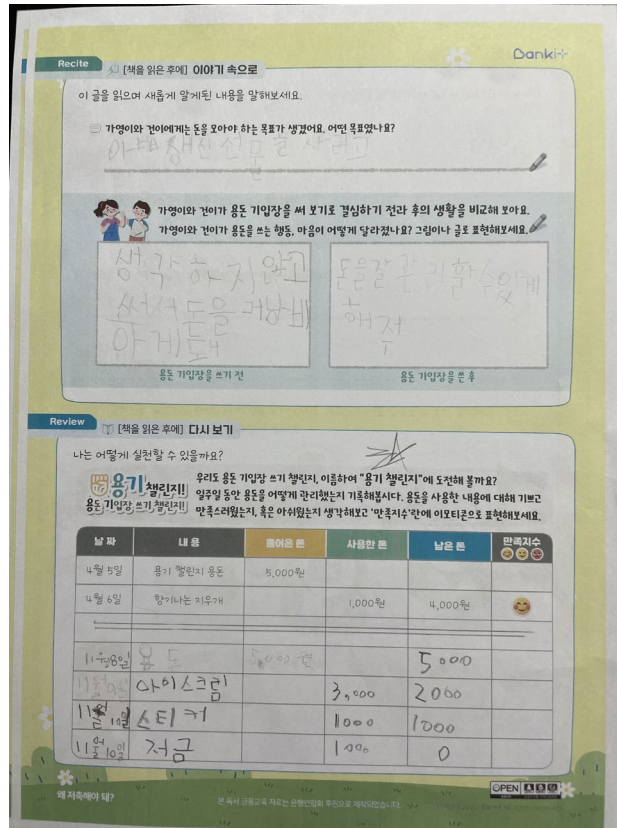 Banki+
Recite
[책을 읽은 후에] 이야기 속으로
이 글을 읽으며 새롭게 알게된 내용을 말해보세요.
가영이와 건이에게는 돈을 모아야 하는 목표가 생겼어요. 어떤 목표였나요?
아빠 생신선물을 사려고
가영이와 건이가 용돈 기입장을 써 보기로 결심하기 전과 후의 생활을 비교해 보아요.
가영이와 건이가 용돈을 쓰는 행동, 마음이 어떻게 달라졌나요? 그림이나 글로 표현해보세요.
생각하지 않고
써서 돈을 낭비
하게돼
돈을잘 관리할수있게
해줘
용돈 기입장을 쓰기 전
용돈 기입장을 쓴 후
Review
[책을 읽은 후에] 다시 보기
나는 어떻게 실천할 수 있을까요?
용기 챌린지!
용돈 기입장 쓰기 챌린지!
우리도 용돈 기입장 쓰기 챌린지, 이름하여 "용기 챌린지"에 도전해 볼까요?
일주일 동안 용돈을 어떻게 관리했는지 기록해봅시다. 용돈을 사용한 내용에 대해 기쁘고
만족스러웠는지, 혹은 아쉬웠는지 생각해보고 '만족지수'란에 이모티콘으로 표현해보세요.
날 짜 내 용 들어온 돈 사용한 돈 남은 돈 만족지수
4월 5일 용기 챌린지 용돈 5,000원
4월 6일 향기나는 지우개 1,000원 4,000원
11월8일 용돈 5,000원 5000
11월 아이스크림 3,000 2000
11월 10일 스티커 1000 1000
11월 10일 저금 1000 0
왜 저축해야 돼?
본 독서 금융교육 자료는 은행연합회 후원으로 제작되었습니다.
OPEN